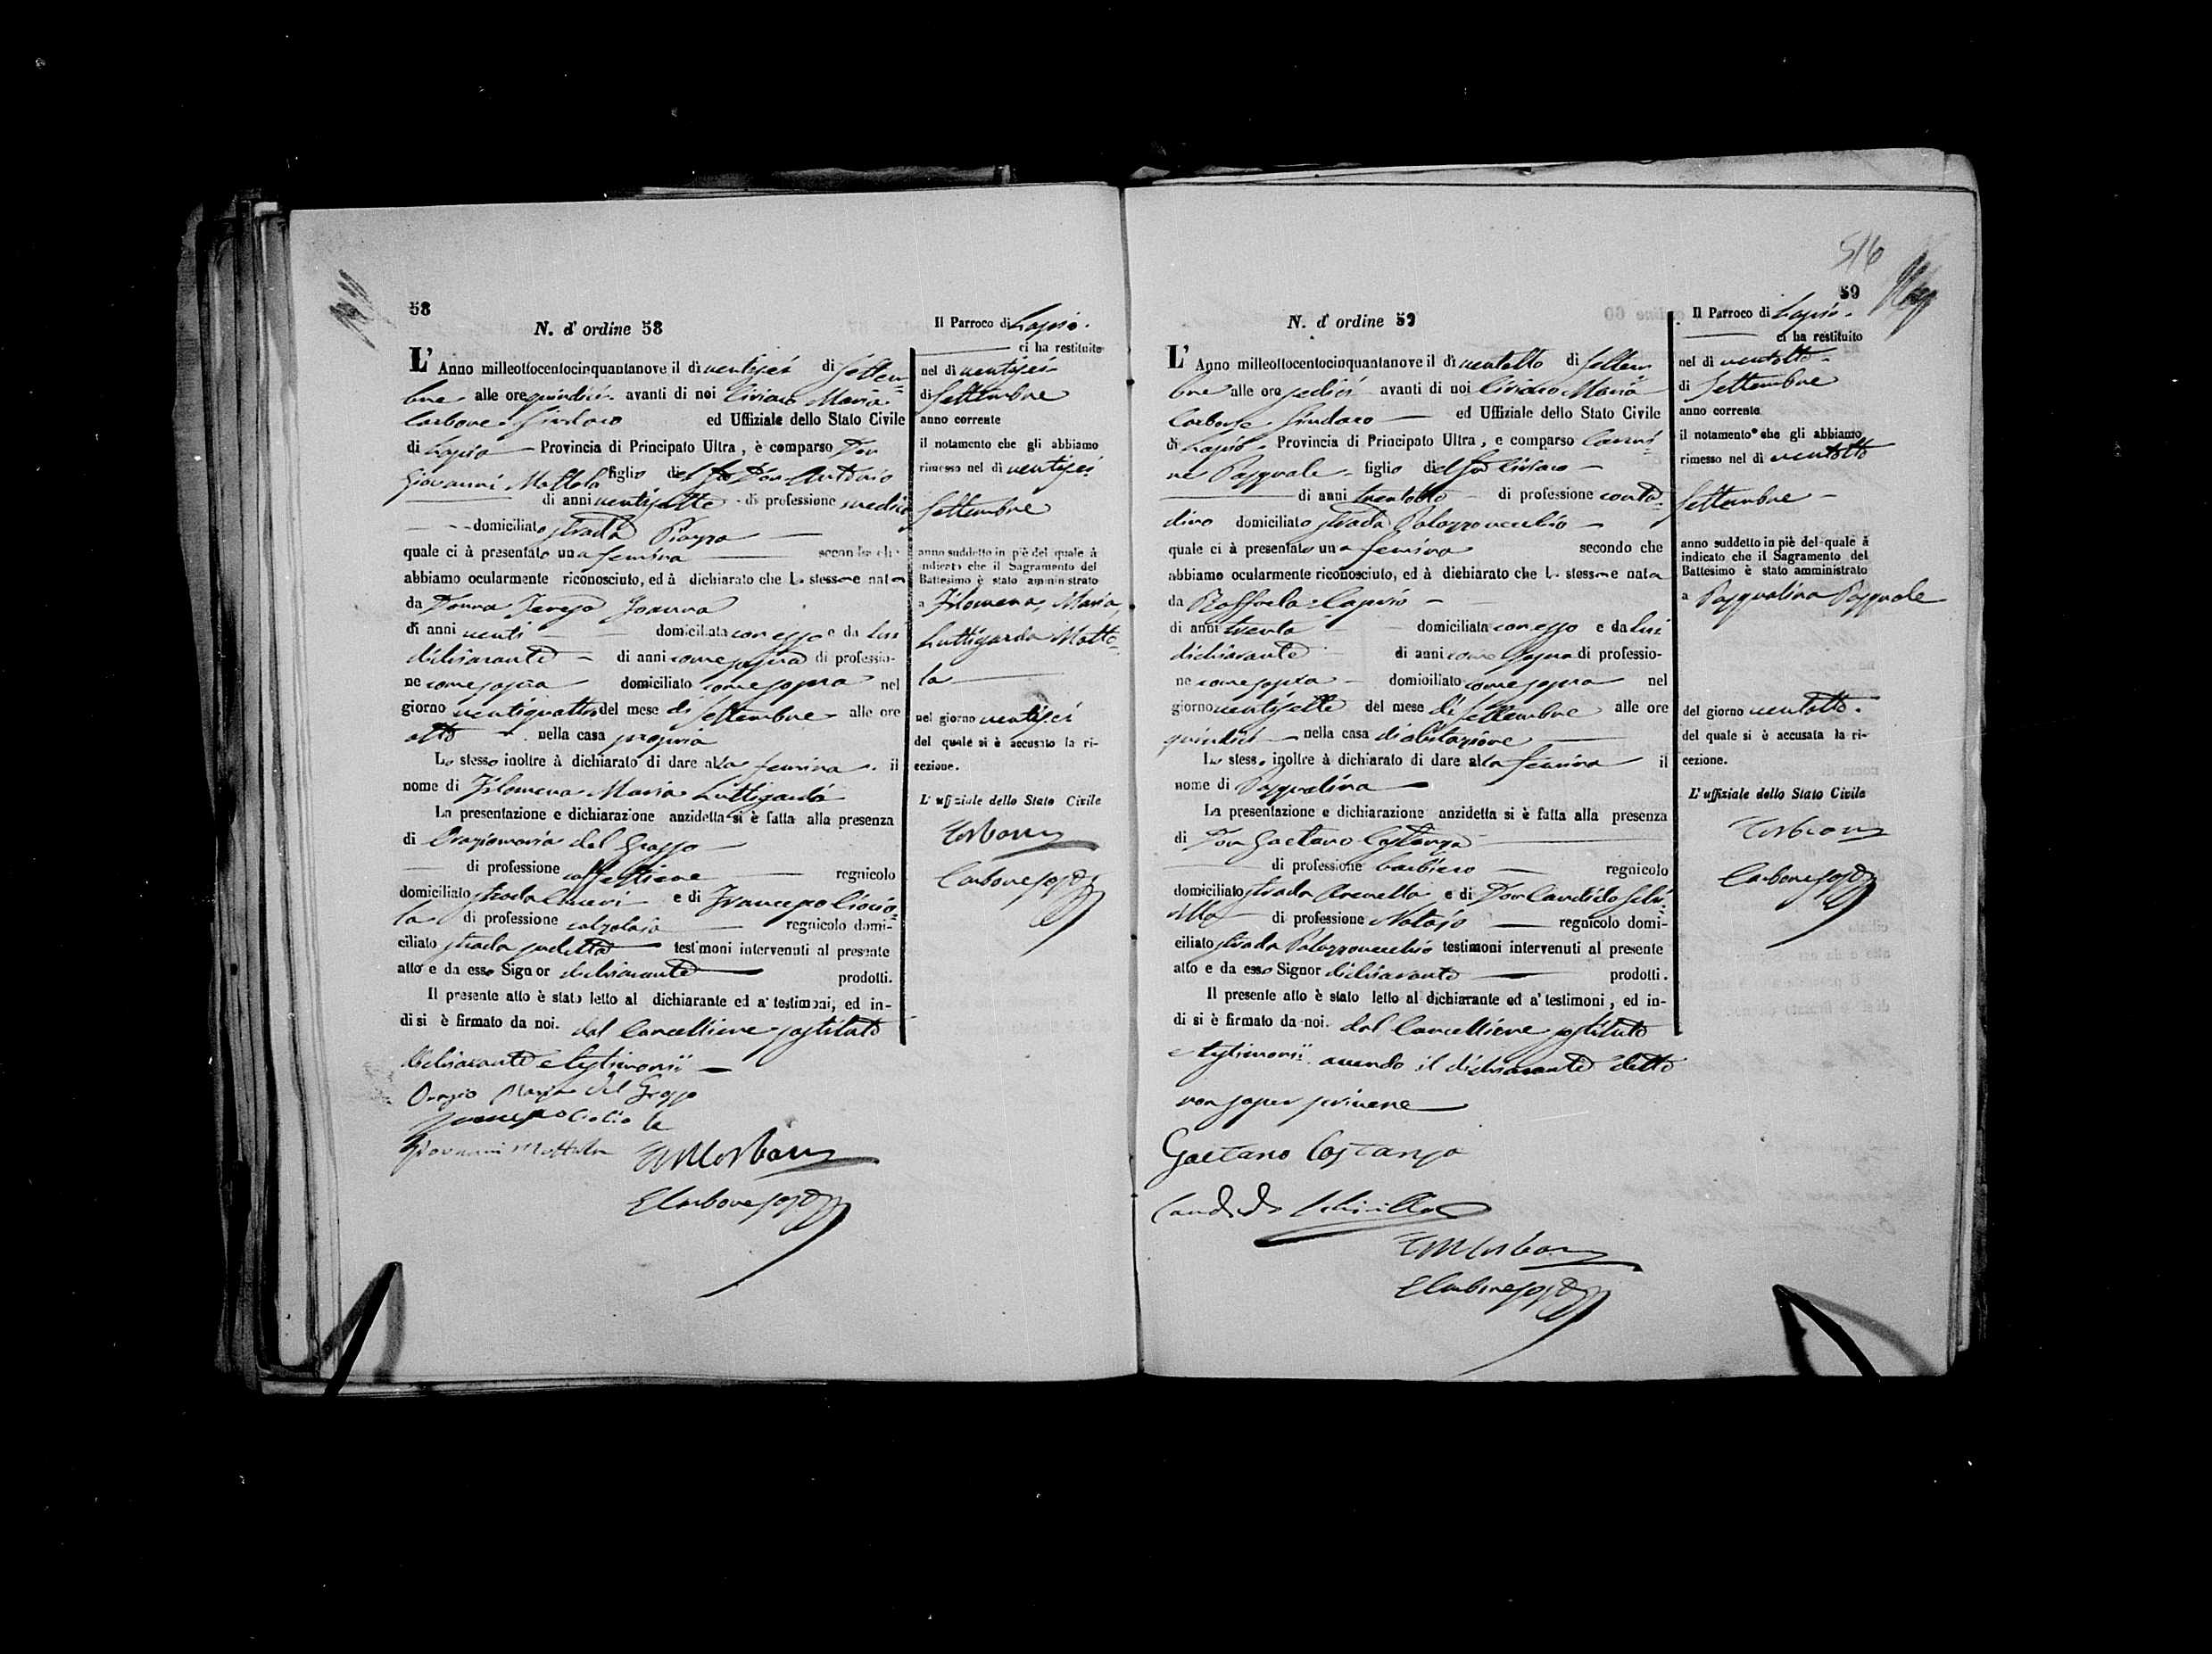 58
N. d' ordine 58
L' Anno milleottocentocinquantanove il dì ventisei di Settem=
bre alle ore quindici avanti di noi Ciriaco Maria
Carbone Sindaco ed Uffiziale dello Stato Civile
di Lapio Provincia di Principato Ultra, è comparso Don
Giovanni Mottola figlio del fu Don Antonio
di anni ventisette di professione medico
domiciliato strada Piazza
quale ci à presentato una femina secondo che
abbiamo ocularmente riconosciuto, ed à dichiarato che la stessa e nata
da Donna Teresa
di anni venti domiciliata con esso e da lui
dichiarante di anni come sopra di professio-
ne come sopra domiciliato come sopra nel
giorno ventiquattro del mese di Settembre alle ore
otto nella casa propria
Lo stesso inoltre à dichiarato di dare alla femina il
nome di Filomena Maria Luttigarda
La presentazione e dichiarazione anzidetta si è fatta alla presenza
di Oraziomaria del Grosso
di professione regnicolo
domiciliato strada e di Francesco Ciocio=
la di professione calzolajo regnicolo domi-
ciliato strada sudetta testimoni intervenuti al presente
atto e da esso Signor dichiarante prodotti.
Il presente atto è stato letto al dichiarante ed a' testimoni, ed in-
di si è firmato da noi. dal Cancelliere sostituto
dichiarante e testimonii
Orazio Maria del Grosso
Francesco
Giovanni Mottola
CMCarbone
ECarbone sost
Il Parroco di Lapio
ci ha restituito
nel dì ventisei
di Settembre
anno corrente
il notamento che gli abbiamo
rimesso nel dì ventisei
Settembre
anno suddetto in piè del quale à
indicato che il Sagramento del
Battesimo è stato amministrato
a Filomena, Maria,
Luttigarda Motto=
la
nel giorno ventisei
del quale si è accusato la ri-
cezione.
L' uffiziale dello Stato Civile
Carbone
Carbone sost
516
59
N. d' ordine 59
L' Anno milleottocentocinquantanove il dì ventotto di Settem
bre alle ore sedici avanti di noi Ciriaco Maria
Carbone Sindaco ed Uffiziale dello Stato Civile
di Lapio Provincia di Principato Ultra, e comparso Carmi
ne Pasquale figlio del fu Ciriaco
di anni trentotto di professione conta=
dino domiciliato strada Palazzovecchio
quale ci à presentato una femina secondo che
abbiamo ocularmente riconosciuto, ed à dichiarato che la stessa e nata
da Raffaela Caprio
di anni trenta domiciliata con esso e da lui
dichiarante di anni come sopra di professio-
ne come sopra domiciliato come sopra nel
giorno ventisette del mese di Settembre alle ore
quindici nella casa di abitazione
Lo stesso inoltre à dichiarato di dare alla femina il
nome di Pasqualina
La presentazione e dichiarazione anzidetta si è fatta alla presenza
di Don Gaetano Costanza
di professione barbiero regnicolo
domiciliato strada Arenella e di Don Candido Schi=
rillo di professione Notajo regnicolo domi-
ciliato strada Palazzovecchio testimoni intervenuti al presente
atto e da esso Signor dichiarante prodotti.
Il presente atto è stato letto al dichiarante ed a' testimoni, ed in-
di si è firmato da noi. dal Cancelliere sostituto
e testimonii avendo il dichiarante detto
non saper scrivere
Gaetano Costanza
Candido Schirillo
CMCarbone
ECarbone sost
Il Parroco di Lapio
ci ha restituito
nel dì ventotto
di Settembre
anno corrente
il notamento che gli abbiamo
rimesso nel dì ventotto
Settembre
anno suddetto in piè del quale à
indicato che il Sagramento del
Battesimo è stato amministrato
a Pasqualina Pasquale
del giorno ventotto
del quale si è accusata la ri-
cezione.
L' uffiziale dello Stato Civile
Carbone
Carbone sost